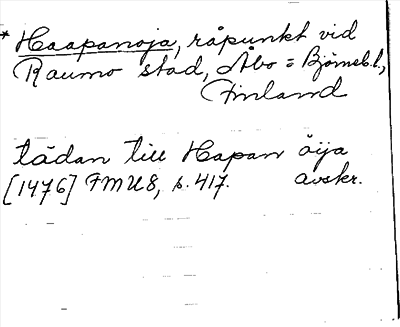 * Haapanoja, råpunkt vid
Raumo stad, Åbo = Björneb. l.,
Finland
tädan till Hapan öija
[1476] FMU 8, s. 417. avskr.